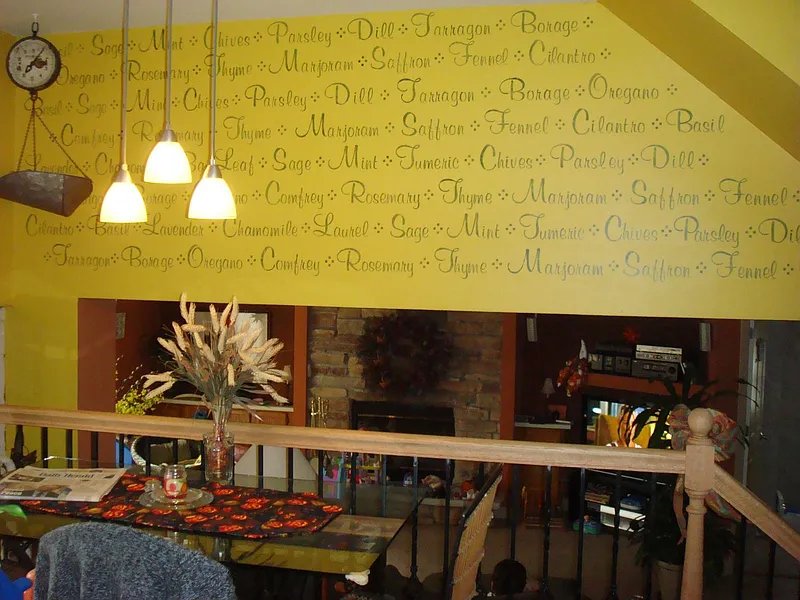 Sage ❖ Mint ❖ Chives ❖ Parsley ❖ Dill ❖ Tarragon ❖ Borage ❖
Oregano ❖ Rosemary ❖ Thyme ❖ Marjoram ❖ Saffron ❖ Fennel ❖ Cilantro ❖
Basil ❖ Sage ❖ Mint ❖ Chives ❖ Parsley ❖ Dill ❖ Tarragon ❖ Borage ❖ Oregano ❖
❖ Comfrey ❖ Rosemary ❖ Thyme ❖ Marjoram ❖ Saffron ❖ Fennel ❖ Cilantro ❖ Basil
Lavender ❖ Leaf ❖ Sage ❖ Mint ❖ Tumeric ❖ Chives ❖ Parsley ❖ Dill ❖
Borage ❖ Comfrey ❖ Rosemary ❖ Thyme ❖ Marjoram ❖ Saffron ❖ Fennel ❖
Cilantro ❖ Basil ❖ Lavender ❖ Chamomile ❖ Laurel ❖ Sage ❖ Mint ❖ Tumeric ❖ Chives ❖ Parsley ❖ Dil
❖ Tarragon ❖ Borage ❖ Oregano ❖ Comfrey ❖ Rosemary ❖ Thyme ❖ Marjoram ❖ Saffron ❖ Fennel ❖
Daily Herald